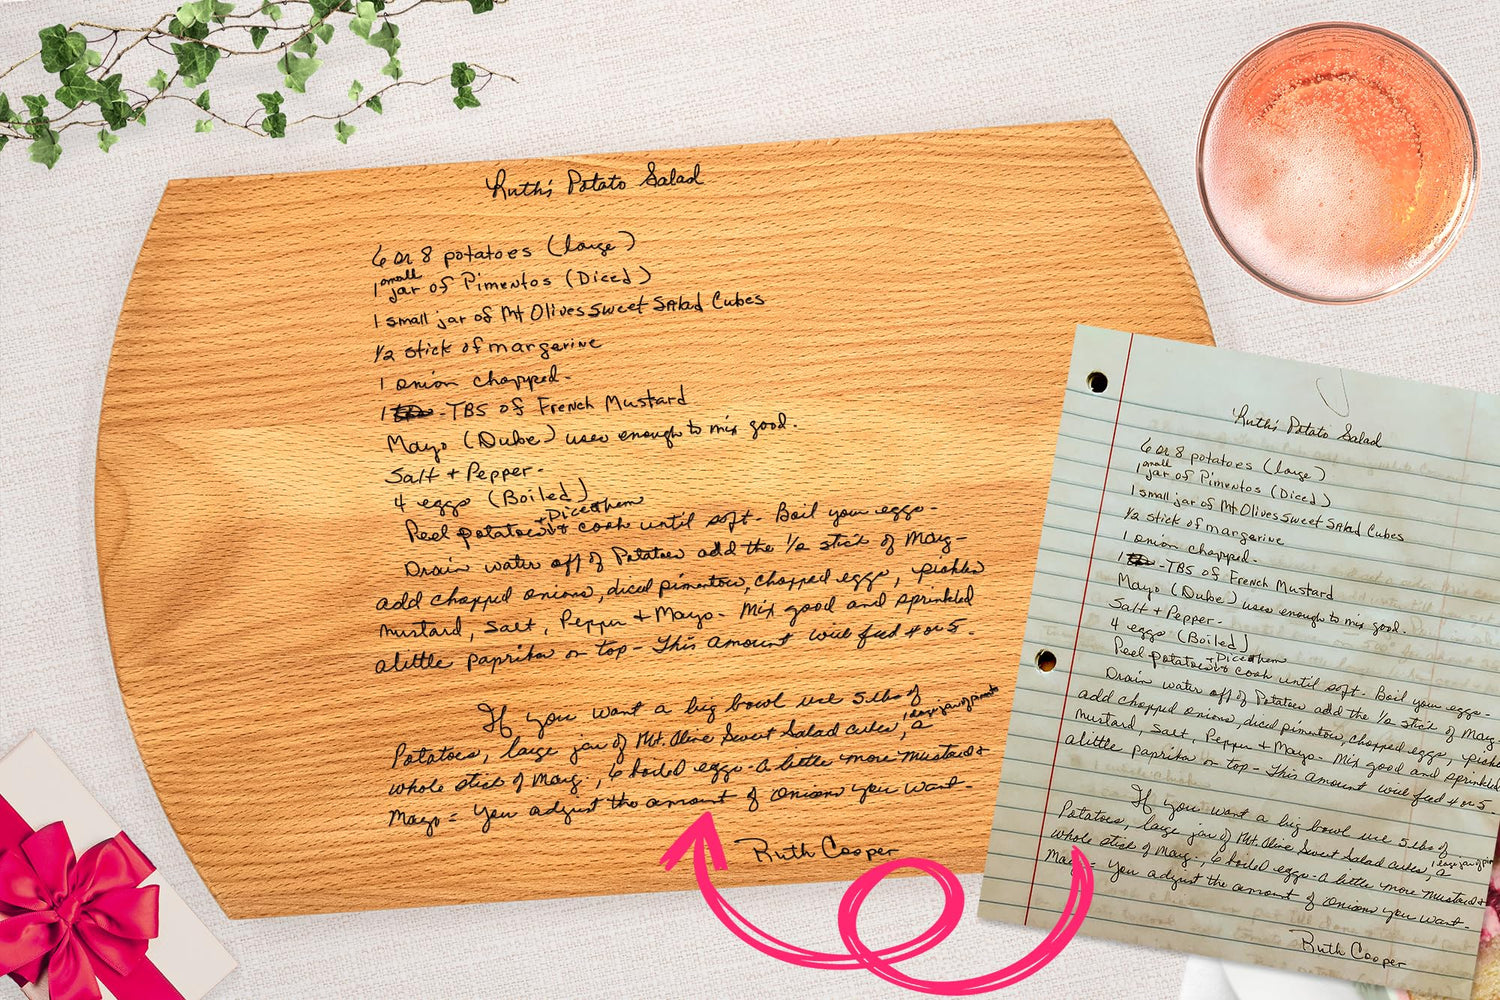 Ruth's Potato Salad
6 or 8 potatoes (large)
1 small jar of Pimentos (Diced)
1 small jar of Mt Olives Sweet Salad Cubes
1/2 stick of margarine
1 onion chopped-
1 -TBS of French Mustard
Mayo (Duke) uses enough to mix good.
Salt + Pepper-
4 eggs (Boiled)
Peel potatoes + Diced them cook until soft- Boil your eggs-
Drain water off of Potatoes add the 1/2 stick of Marg-
add chopped onions, diced pimentos, chopped eggs, pickles
mustard, Salt, Pepper + Mayo- Mix good and sprinkled
alittle paprika on top- This amount will feed 4 or 5-
If you want a big bowl use 5 lbs of
Potatoes, large jar of Mt. Olive Sweet Salad cubes, 1 large jar of pimento a
whole stick of Marg-, 6 boiled eggs-a little more mustard +
Mayo = You adjust the amount of onions you want-
Ruth Cooper
Ruth's Potato Salad
6 or 8 potatoes (large)
1 small jar of Pimentos (Diced)
1 small jar of Mt Olives Sweet Salad Cubes
1/2 stick of margarine
1 onion chopped-
1 -TBS of French Mustard
Mayo (Duke) uses enough to mix good.
Salt + Pepper-
4 eggs (Boiled)
Peel potatoes + Diced them cook until soft- Boil your eggs-
Drain water off of Potatoes add the 1/2 stick of Marg-
add chopped onions, diced pimentos, chopped eggs,
mustard, Salt, Pepper + Mayo- Mix good and sprinkled
alittle paprika on top- This amount will feed 4 or 5-
If you want a big bowl use 5 lbs of
Potatoes, large jar of Mt. Olive Sweet Salad cubes, 1 large jar of a
whole stick of Marg-, 6 boiled eggs-a little more mustard +
Mayo = You adjust the amount of onions you want-
Ruth Cooper